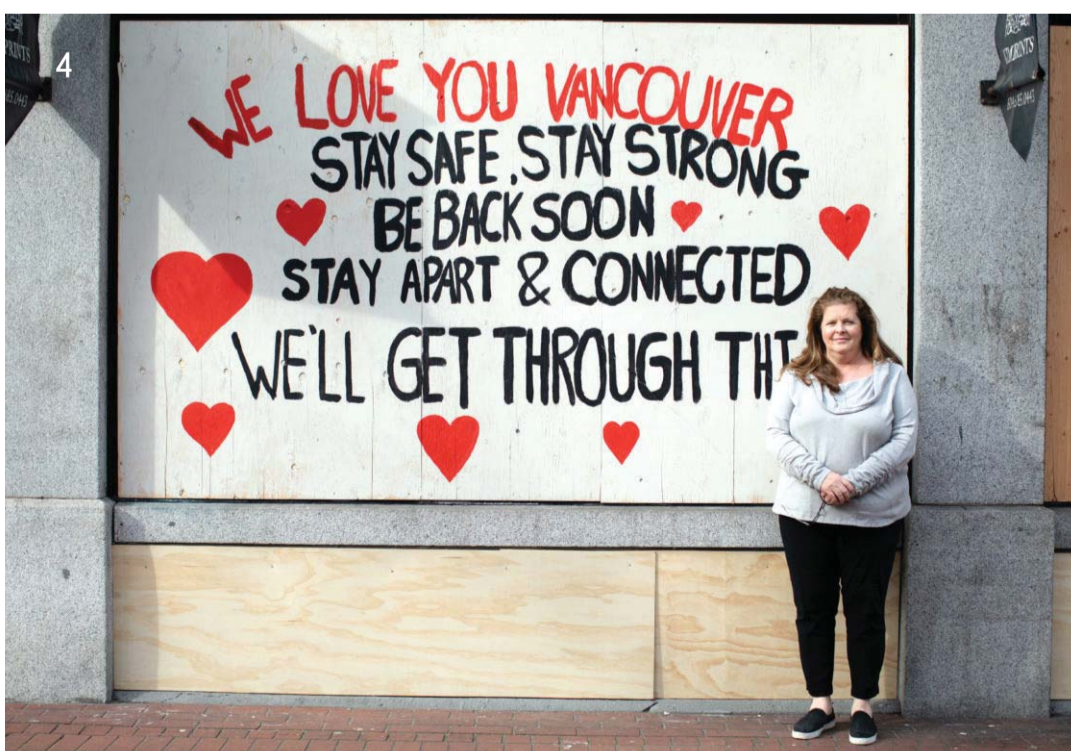 4
WE LOVE YOU VANCOUVER
STAY SAFE, STAY STRONG
BE BACK SOON
STAY APART & CONNECTED
WE'LL GET THROUGH